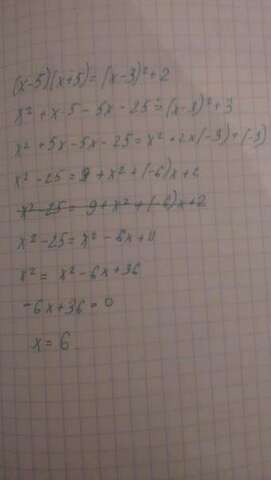 (x-5)(x+5)=(x-3)²+2
x²+x·5-5x-25=(x-3)²+3
x²+5x-5x-25=x²+2x(-3)+(-3)
x²-25=9+x²+(-6)x+2
x²-25=9+x²+(-6)x+2
x²-25=x²-6x+11
x²=x²-6x+36
-6x+36=0
x=6